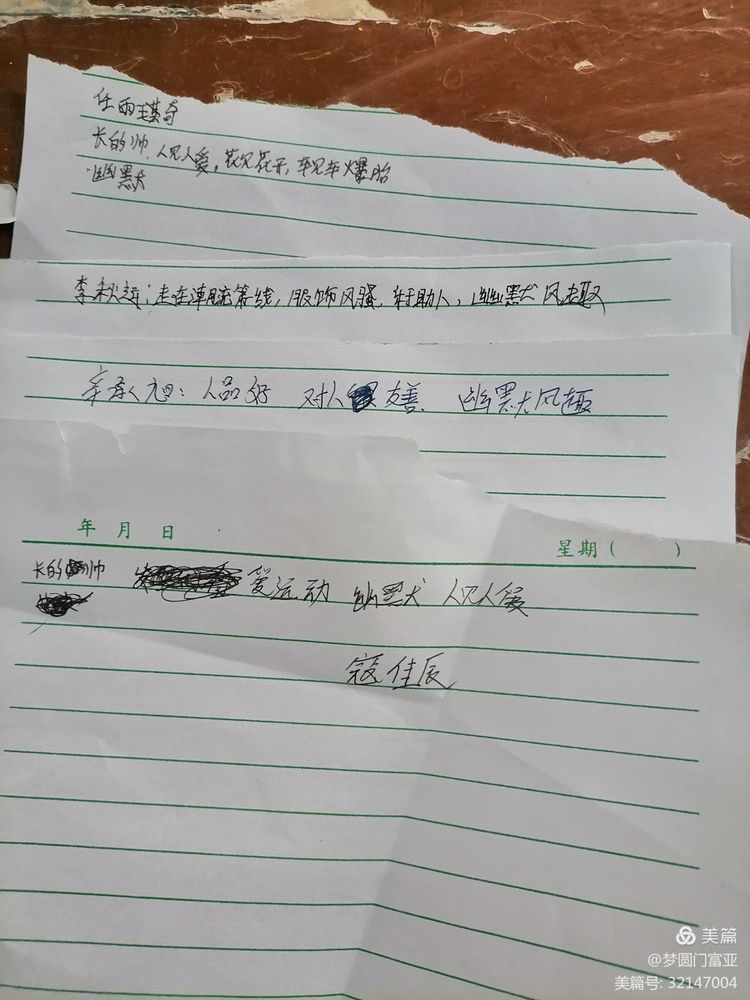 任雨瑾奇
长的帅,人见人爱,花见花开,车见车爆胎
幽默
李秋:走在潮流,服饰风骚,助人,幽默风趣
辛承旭:人品好 对人友善 幽默风趣
年 月 日
星期( )
长的帅 爱运动 幽默 人见人爱
寇佳辰
美篇
@梦圆门富亚
美篇号: 32147004